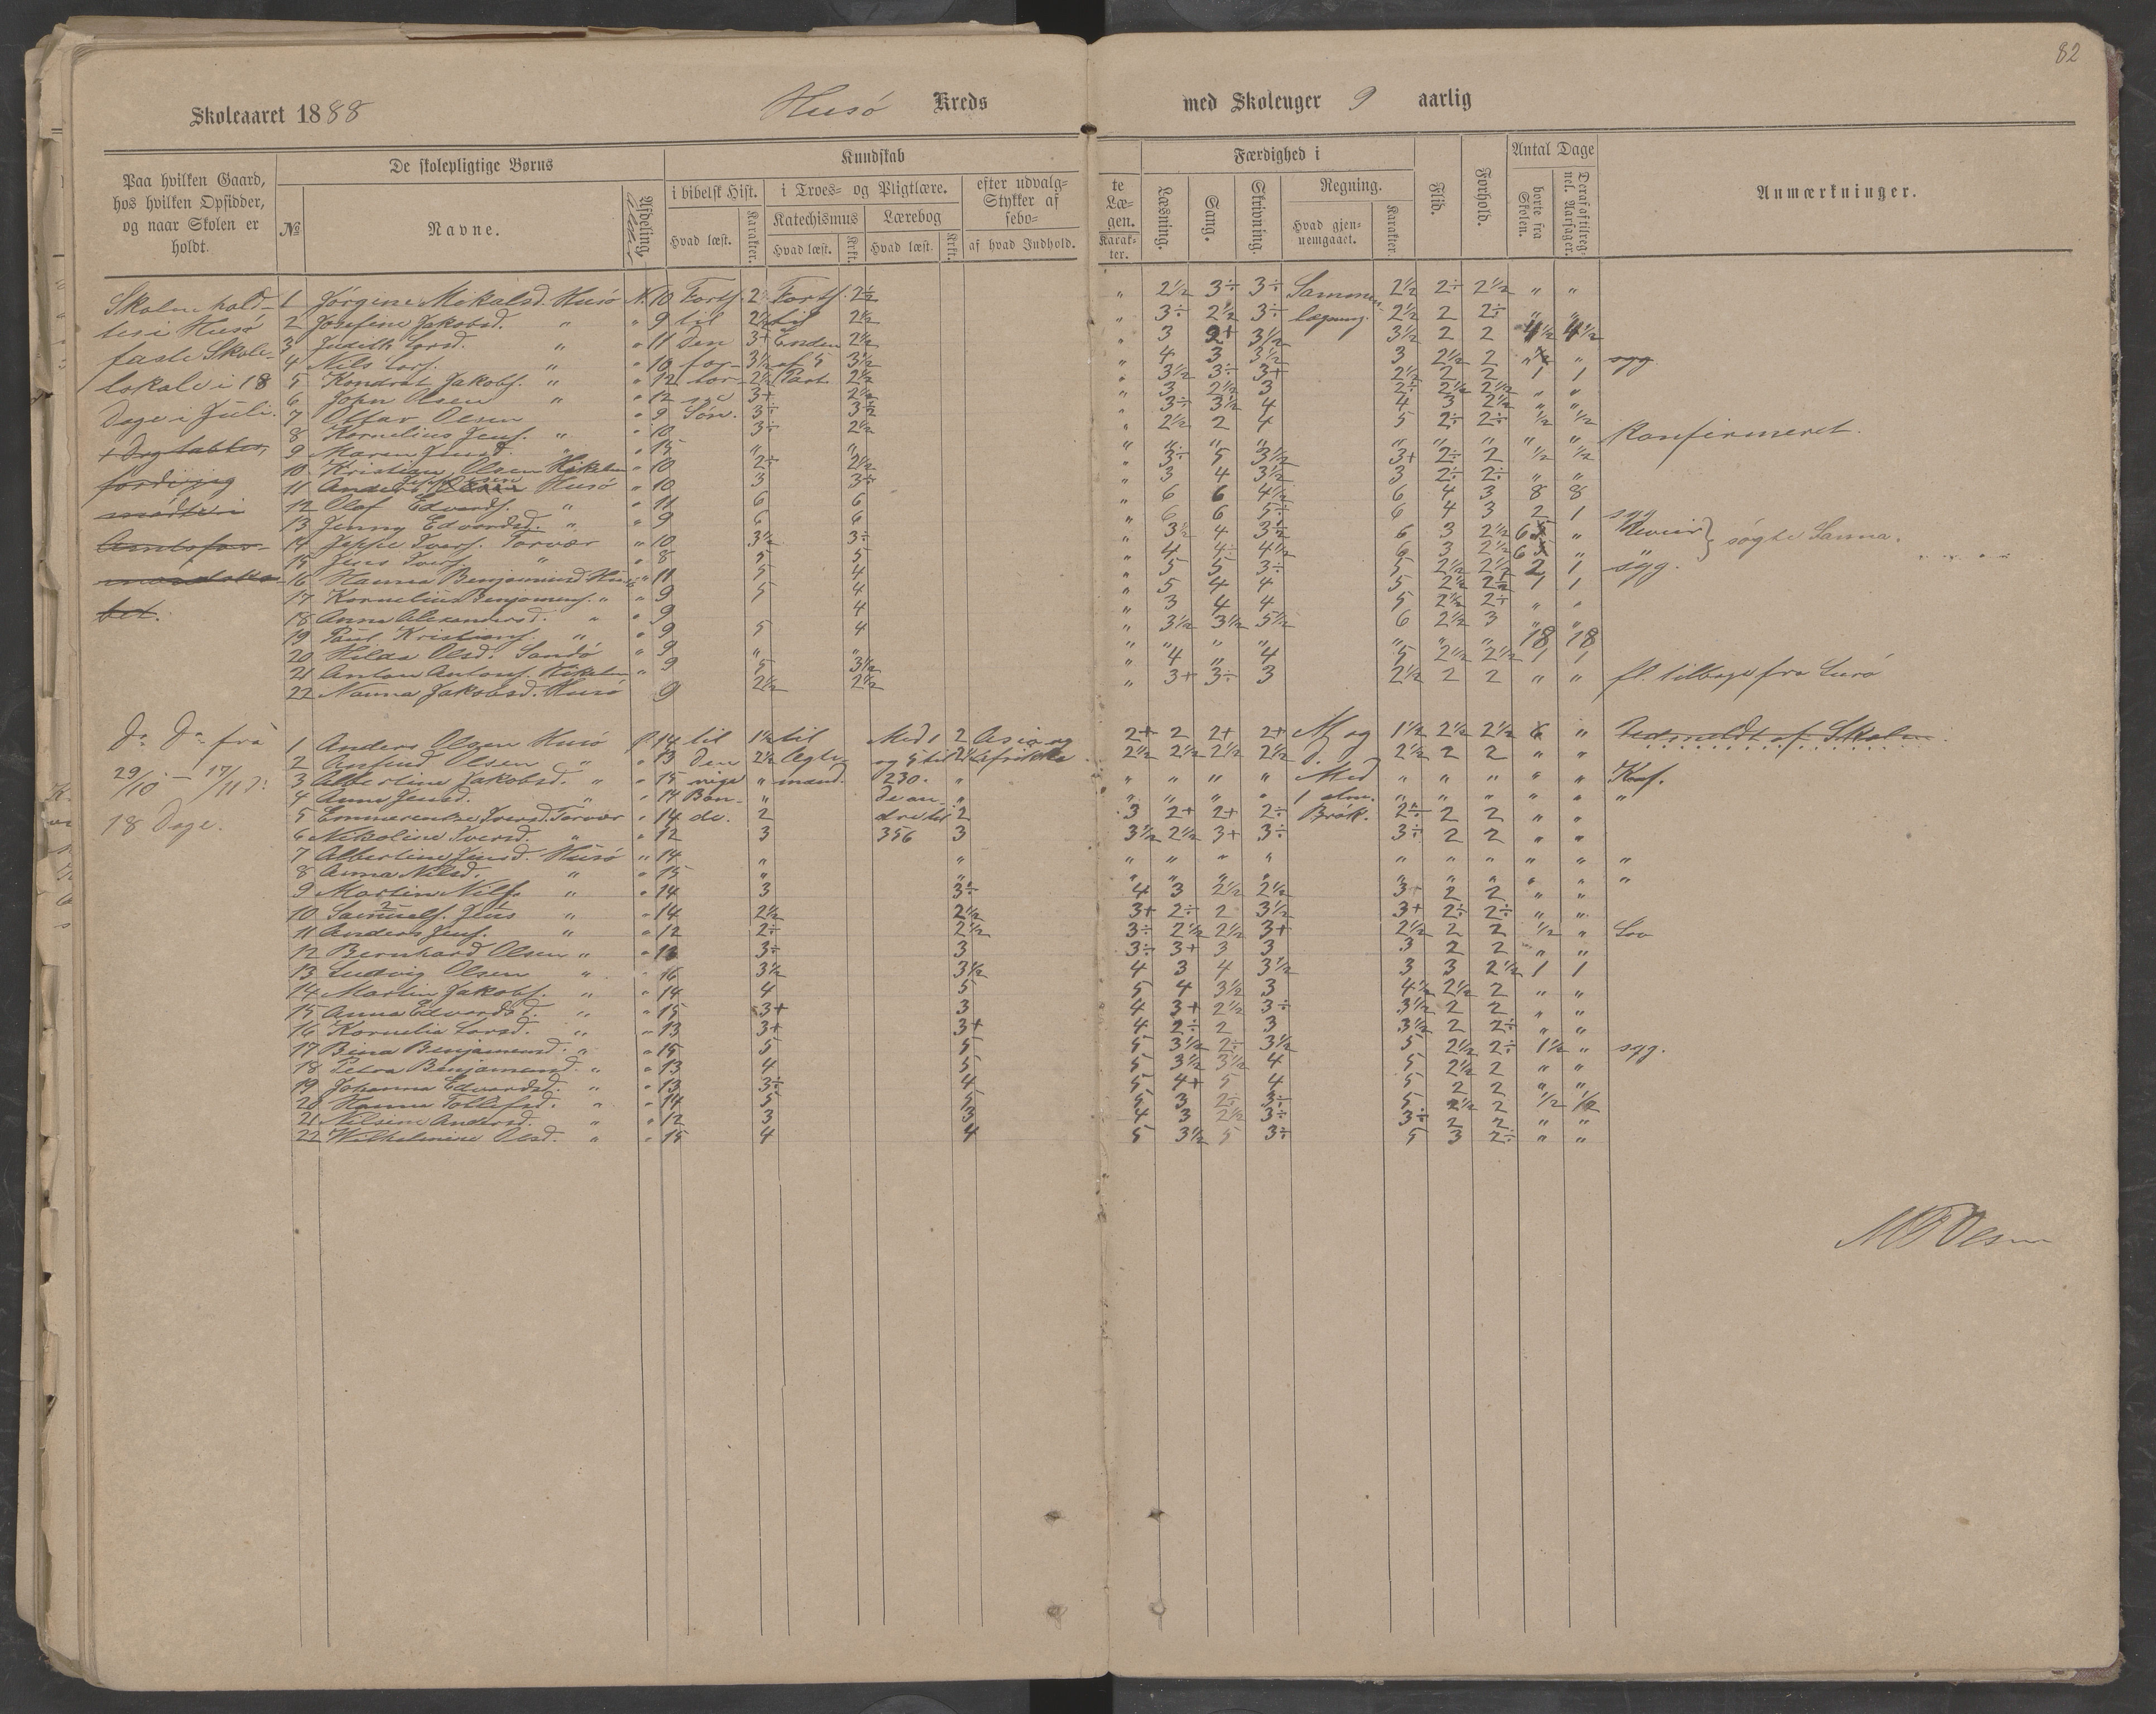 82
Skoleaaret 1888 Husö Kreds med Skoleuger 9 aarlig
Paa hvilken Gaard, hos hvilken Opsidder, og naar Skolen er holdt.
De skolepligtige Børns
№ Navne. Afdeling
Kundskab
i bibelsk Hist. i Troes- og Pligtlære. efter udvalg-
Katechismus Lærebog Stykker af
Hvad læst. Karakter. Hvad læst. Krkt. Hvad læst. Krkt. af hvad Indhold.
te Læ- gen. Karak- ter.
Færdighed i
Læsning. Sang. Skrivning. Regning.
Hvad gjen- nemgaaet. Karakter.
Flid. Forhold.
Antal Dage
borte fra Skolen. Deraf aftilreg- nel. Aarsager.
Anmærkninger.
Skolen hold-
tes i Husö
faste Skole-
lokale i 18
Dage i Juli.
1 Jörgine Mikalsd. Husö N. 10 Forts. 2 Forts. 2½ " 2½ 3÷ 3÷ Sammen- 2½ 2÷ 2½ " "
2 Josefine Jakobsd. " " 9 til 2½ til 2½ " 3÷ 2½ 3÷ lægning. 2½ 2 2÷ " "
3 Judith Larsd. " " 11 den 3+ Enden 2½ " 3 2+ 3½ 3½ 2 2 4½ 4½
4 Nils Lars. " " 10 for- 3½ af 5 3½ " 4 3 3½ 3 2½ 2 " syg
5 Kondrat Jakobs. " " 12 lor- 2½ Part 2½ " 3½ 3÷ 3+ 2½ 2 2 1 1
6 John Olsen " " 12 3+ 2½ " 3 2½ 3 2÷ 2½ 2½ " "
7 Ottar Olsen " 9 Søn. 3÷ " 3÷ 3½ 4 4 3 2½ " "
8 Kornelius Jens. " " 10 3÷ 2½ " 2½ 2 4 5 2÷ 2÷ ½ ½
9 Maren Jensd. " " 15 " " " " " " " " " " " Konfirmeret.
10 Kristian Olsen " 10 2÷ 2½ " 3÷ 5 3½ 3+ 2÷ 2 ½ ½
11 Anders Husö " 10 3 3÷ " 3 4 3½ 3 2÷ 2÷ " "
12 Olaf Edvards. " " 11 6 6 " 6 6 4½ 6 4 3 8 8
13 Jenny Edvardsd. " " 9 6 6 " 6 6 5÷ 6 4 3 2 1 syg
14 Jeppe Ivers. Torvær " 10 3½ 3÷ " 3½ 4 3½ 6 3 2½ 6 " søgte Sanna.
15 Jens Ivers. " " 8 5 5 " 4 4÷ 4½ 6 3 2½ 6 "
16 Hanna Benjaminsd Husö " 11 5 4 " 5 5 3÷ 5 2½ 2½ 2 1 syg.
17 Kornelius Benjamens. " " 9 5 4 " 5 4 4 5 2½ 2½ 1 1
18 Anna Alexandersd. " " 9 4 " 3 4 4 5 2½ 2÷ " "
19 Paul Kristians. " " 9 5 4 " 3½ 3½ 5½ 6 2½ 3 " "
20 Hilda Olsd. Sandö " 9 " " " " " " " " " 18 18
21 Anton Antons. " 9 5 3½ " 4 " 4 5 2½ 2½ 1 1
22 Nanna Jakobsd. Husö 9 2½ 2½ " 3+ 3÷ 3 2½ 2 2 " " fl. tilbage fra Lurö
Do Do fra
29/10 – 17/11
18 Dage.
1 Anders Olsen Husö 14 til 1½ til Med 1 2 Asia og 2+ 2 2+ 2+ M og 1½ 2½ 2½ 6 "
2 Rosfind Olsen " " 13 den 2½ Ægte- og 5 til 2½ Afrikka 2½ 2½ 2½ 2½ D. 2½ 2 2 " "
3 Albertine Jakobsd. " " 15 nige " mand. 230. " " " " " Med " " " " " Konf.
4 Anna Jensd. " " 14 Bøn- " De an- " " " " " 1 " " " " " "
5 Emmerentse Iversd. Torvær " 14 de. 2 dre til 2 3 2+ 2+ 2÷ Brök. 2÷ 2 2 " "
6 Nikoline Iversd. " " 12 3 356 3 3½ 2½ 3+ 3÷ 3÷ 2 2 " "
7 Albertine Jensd. Husö " 14 " " " " " " " " " " " "
8 Anna Nilsd. " " 15 " " " " " " " " " " " "
9 Martin Nils. " " 14 3 3÷ 4 3 2½ 2½ 3+ 2 2 " "
10 Samuels. Jens " " 14 2½ 2½ 3+ 2÷ 2 3½ 3+ 2÷ 2÷ " "
11 Anders Jens. " " 12 2÷ 2½ 3÷ 2½ 2½ 3+ 2½ 2 2 ½ " Lov
12 Bernhard Olsen " " 3÷ 3 3÷ 3+ 3 3 3 2 2 " "
13 Ludvig Olsen " " 16 3½ 3½ 4 3 4 3½ 3 3 2½ 1 1
14 Martin Jakobs. " " 14 4 5 5 4 3½ 3 4½ 2½ 2 " "
15 Anna Edvardsd. " " 15 3+ 3 4 3+ 2½ 3÷ 3½ 2 2 " "
16 Kornelia Larsd. " " 13 3+ 3+ 4 2÷ 2 3 3½ 2 2÷ " "
17 Bina Benjamensd. " " 15 5 5 5 3½ 2÷ 3½ 5 2½ 2÷ 1½ " syg.
18 Petra Benjamensd. " " 13 4 5 5 3½ 3½ 4 5 2½ 2 " "
19 Johanna Edvardsd. " " 13 3÷ 4 5 4+ 5 4 5 2 2 " "
20 Hanna Tollefsd. " " 14 5 5 5 3 2÷ 3÷ 5 2½ 2 ½ ½
21 Nilsine Andersd. " " 12 3 3 4 3 2½ 3÷ 3÷ 2 2 " "
22 Wilhelmine Olsd. " " 15 4 4 5 3½ 5 3÷ 5 3 2÷ " "